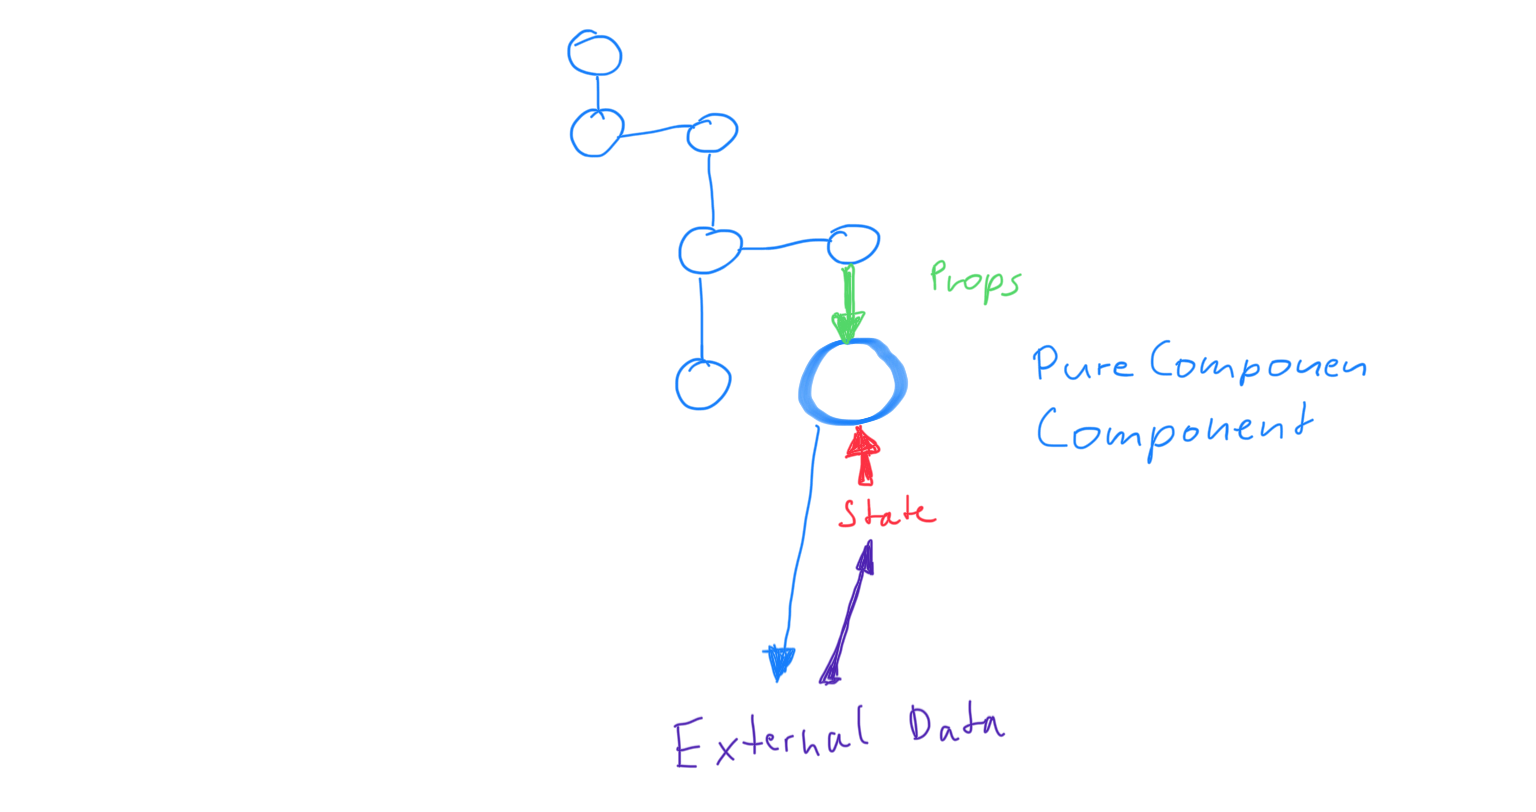 Props
Pure Componen
Component
State
External Data